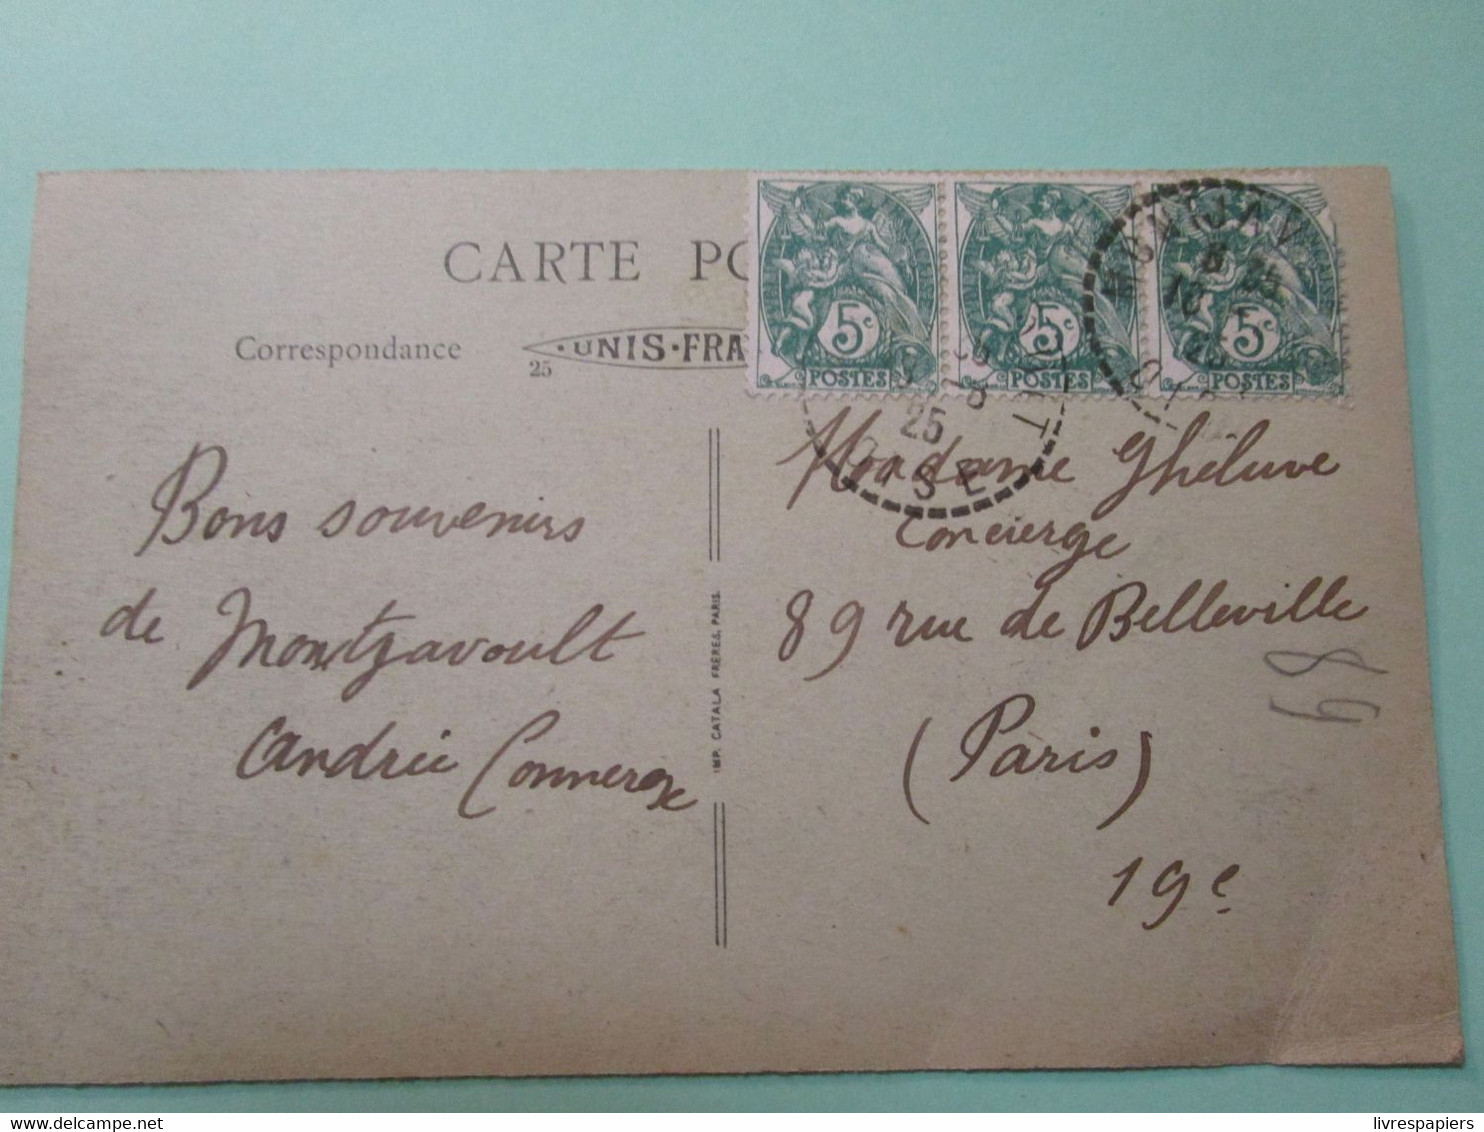 CARTE
Correspondance
·UNIS·FRA
25
5c
POSTES
5c
POSTES
5c
POSTES
25
OISE
Bons souvenirs
de Montjavoult
Andrée
IMP. CATALA FRÈRES, PARIS.
Madame Ghéluve
Concierge
89 rue de Belleville
(Paris)
19e
68
delcampe.net
livrespapiers